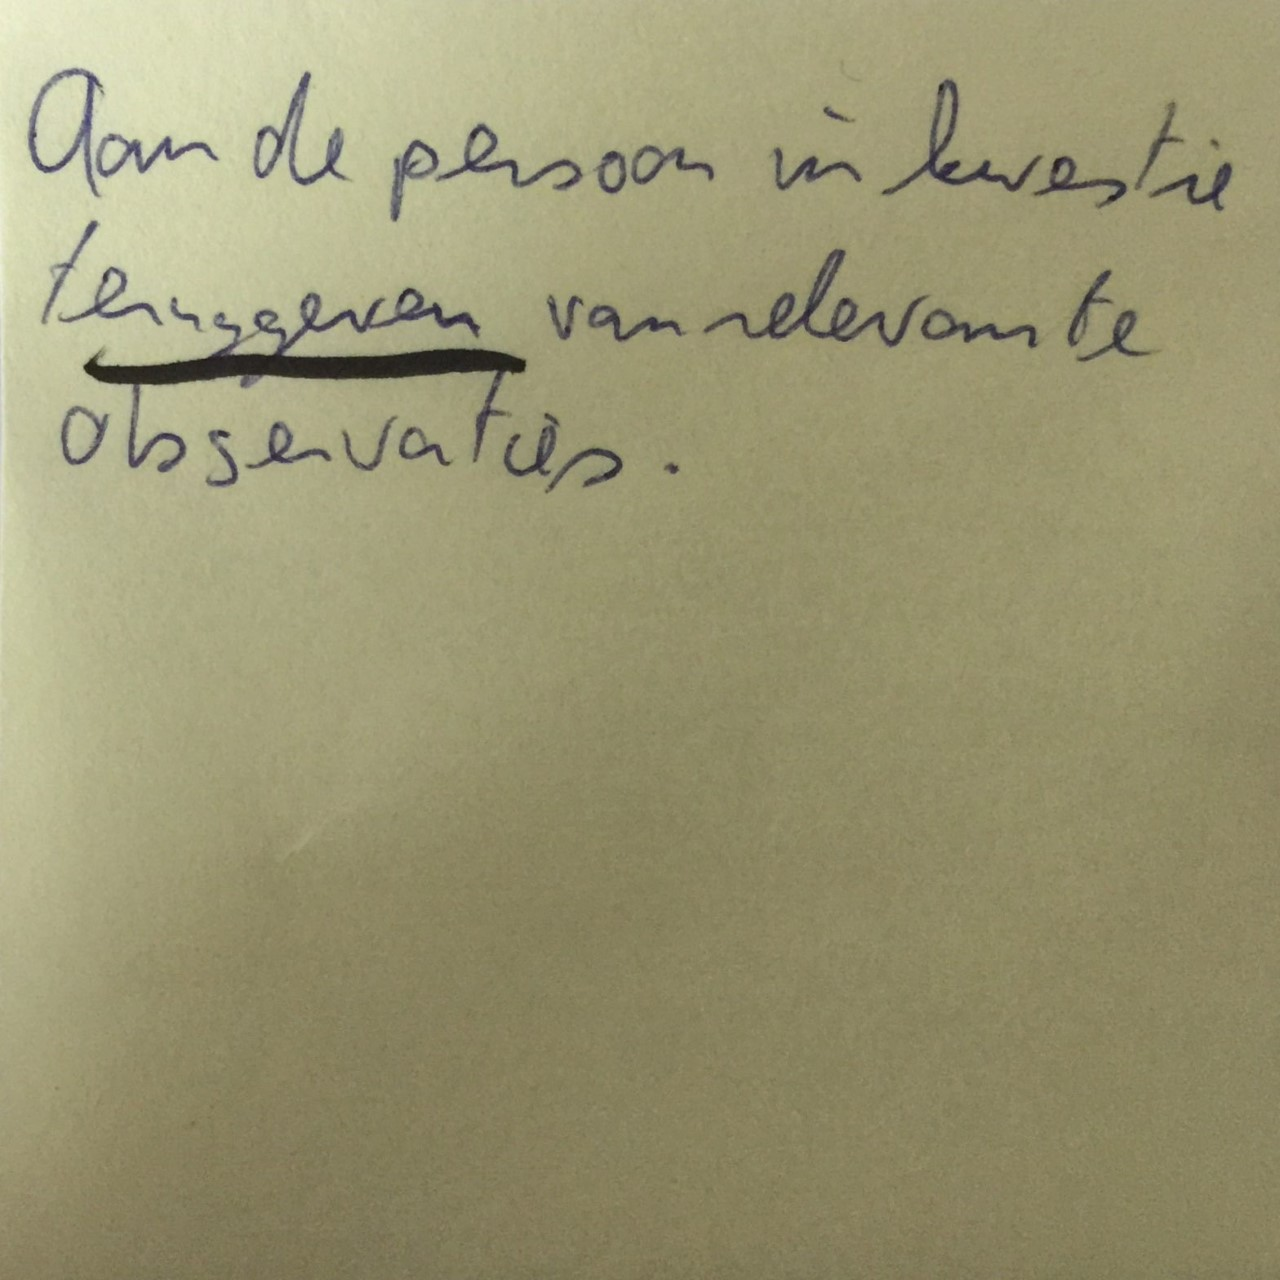 Aan de persoon in kwestie
teruggeven van relevante
observaties.